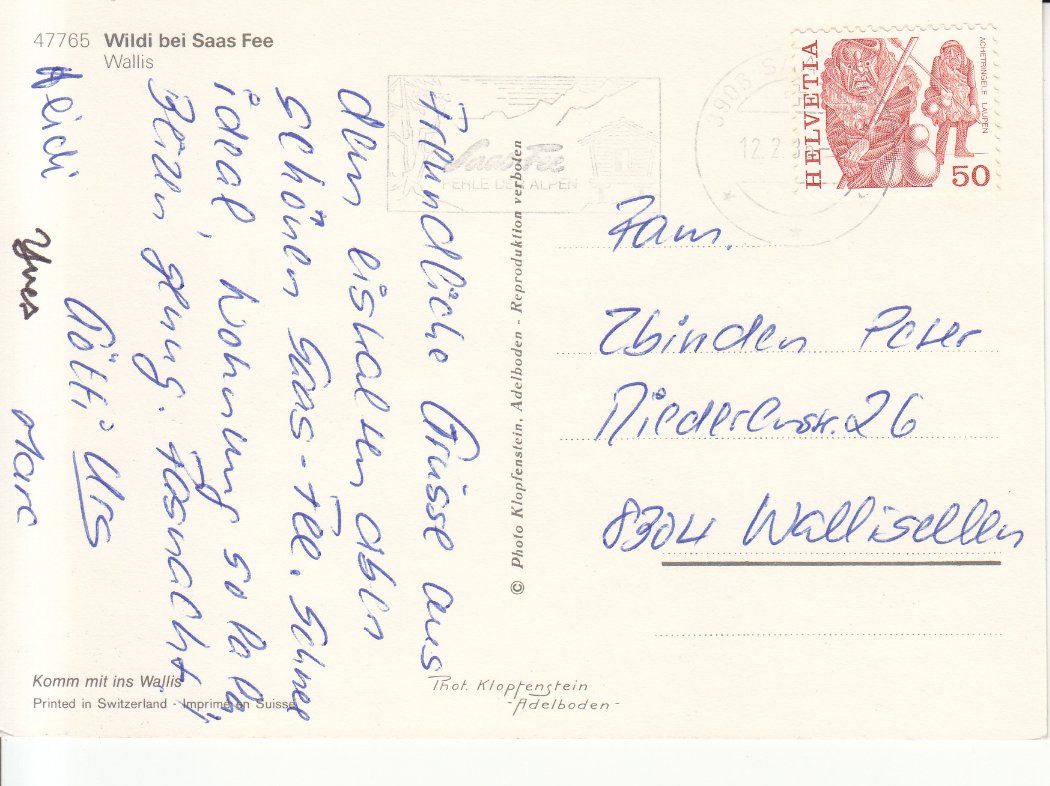 47765 Wildi bei Saas Fee
Wallis
Freundliche Grüsse aus
dem eiskalten aben
schönen Saas-Fee. Schnee
ideal, Wohnung so lala,
Beizen genug. Fasnacht,
Götti Urs
Heidi Yves Marc
Komm mit ins Wallis
Printed in Switzerland - Imprimé en Suisse
© Photo Klopfenstein. Adelboden - Reproduktion verboten
Phot. Klopfenstein
- Adelboden -
Saas-Fee
PERLE DER ALPEN
3906 SA
12.2.8
HELVETIA
ACHETRINGELE LAUPEN
50
Fam.
Zbinden Peter
Riedenerstr. 26
8304 Wallisellen